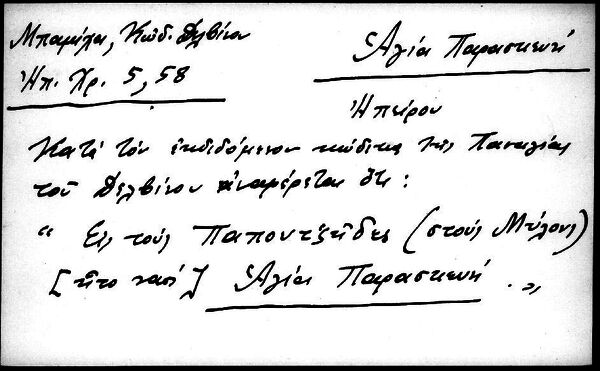 Μπαμίχα, Κώδ. Δελβίνου
Ἠπ. Χρ. 5, 58
Ἁγία Παρασκευή
Ἠπείρου
Κατά τόν ἐκδιδόμενον κώδικα τῆς Παναγίας
τοῦ Δελβίνου ἀναφέρεται ὅτι:
“ Εἰς τούς Παπουτζῆδες (στούς Μύλους)
[ἦτο ναός] Ἁγία Παρασκευή. „